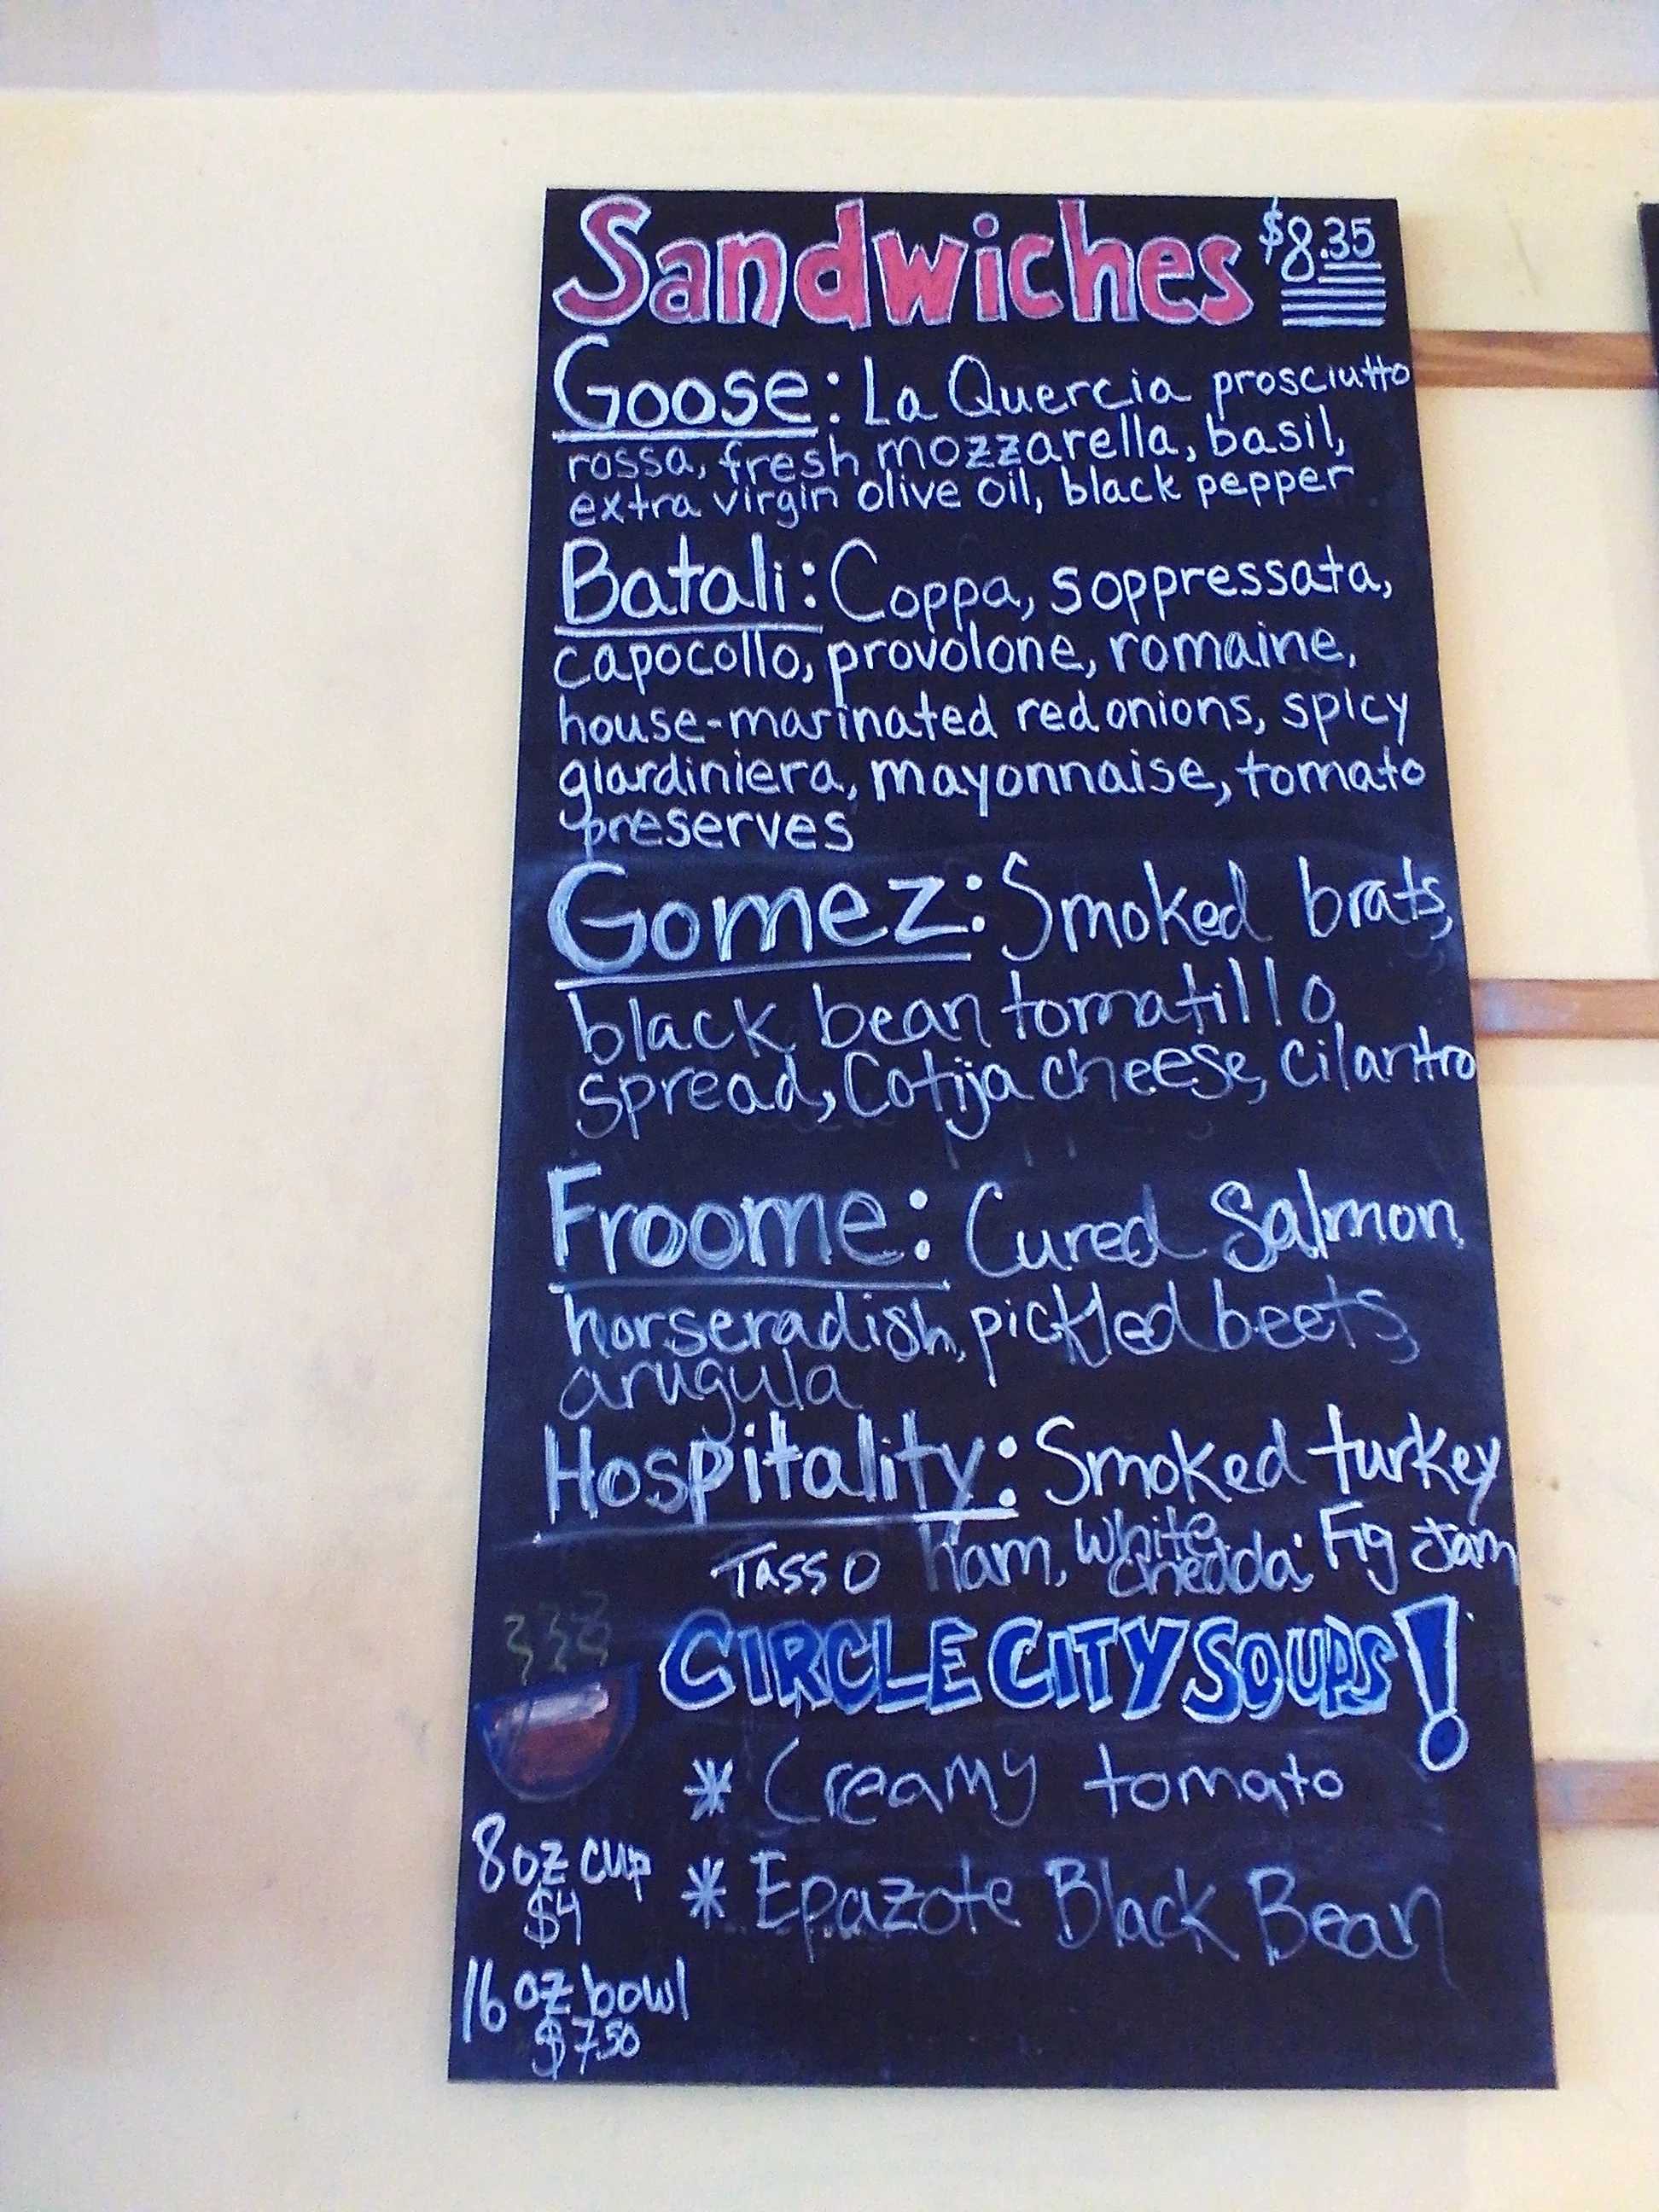 Sandwiches $8.35
Goose: La Quercia prosciutto
rossa, fresh mozzarella, basil,
extra virgin olive oil, black pepper
Batali: Coppa, soppressata,
capocollo, provolone, romaine,
house-marinated red onions, spicy
giardiniera, mayonnaise, tomato
preserves
Gomez: Smoked brats,
black bean tomatillo
spread, Cotija cheese, cilantro
Froome: Cured Salmon,
horseradish, pickled beets,
arugula
Hospitality: Smoked turkey
Tasso ham, white chedda, Fig Jam
CIRCLE CITY SOUPS!
* Creamy tomato
* Epazote Black Bean
8oz cup
$4
16 oz bowl
$7.50